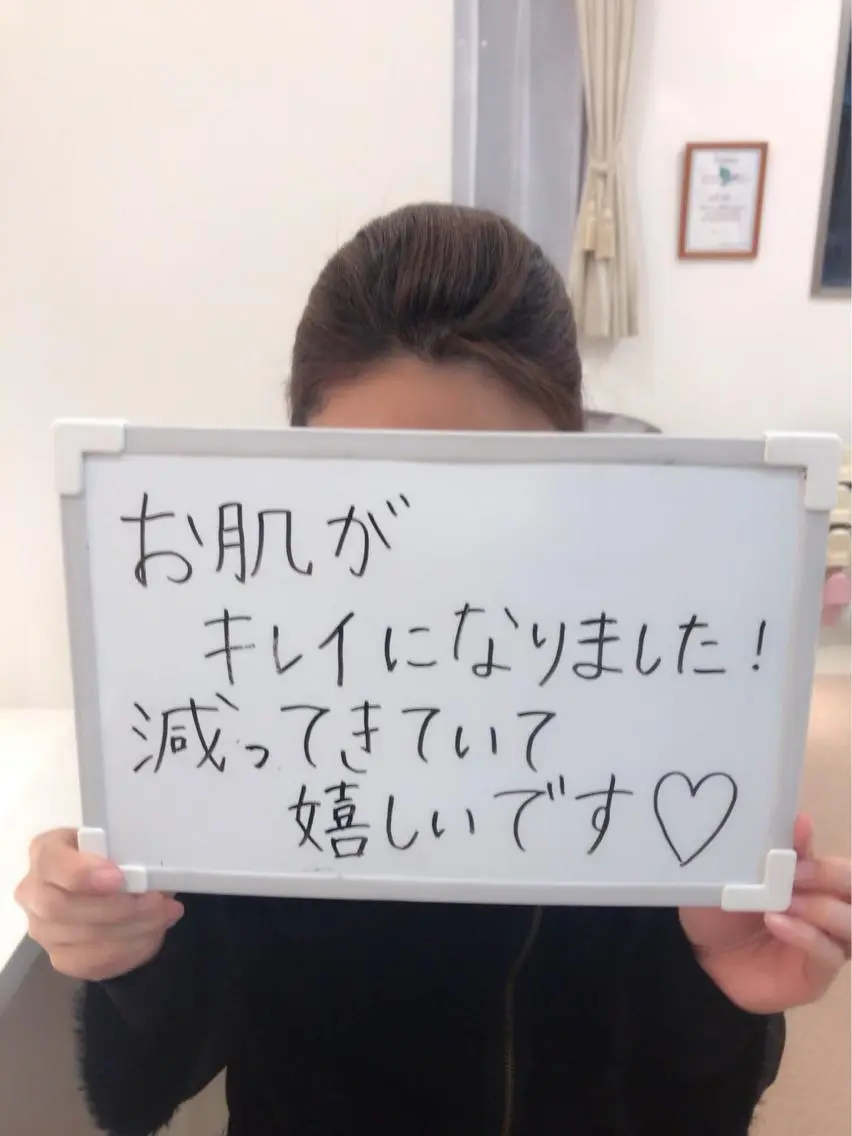 お肌が
キレイになりました!
減ってきていて
嬉しいです♡